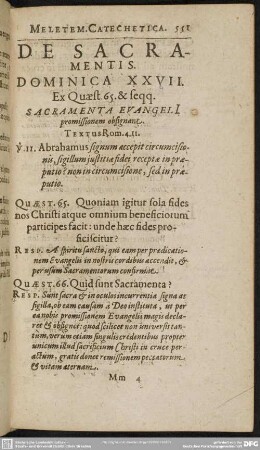 MELETEM. CATECHETICA. 551
DE SACRA-
MENTIS.
DOMINICA XXVII.
Ex Quæst 65. & seqq.
SACRAMENTA EVANGELI
promissionem obsignant.
TEXTUS Rom. 4. 11.
V. 11. Abrahamus signum accepit circumcisio-
nis, sigillum justitiæ fidei receptæ in præ-
putio: non in circumcisione, sed in præ-
putio.
QUÆST. 65. Quoniam igitur sola fides
nos Christi atque omnium beneficiorum
participes facit: unde hæc fides pro-
ficiscitur?
RESP. A spiritu sancto, qui eam per prædicatio-
nem Evangelii in nostris cordibus accendit, &
per usum Sacramentorum confirmat.
QUÆST. 66. Quid sunt Sacramenta?
RESP. Sunt sacra & in oculos incurrentia signa ac
sigilla, ob eam causam à Deo instituta, ut per
ea nobis promissionem Evangelii magis declaret
& obsignet: quod scilicet non universis tan-
tum, verum etiam singulis credentibus propter
unicum illud sacrificium Christi in cruce per-
actum, gratis donet remissionem peccatorum
& vitam æternam.
Mm 4